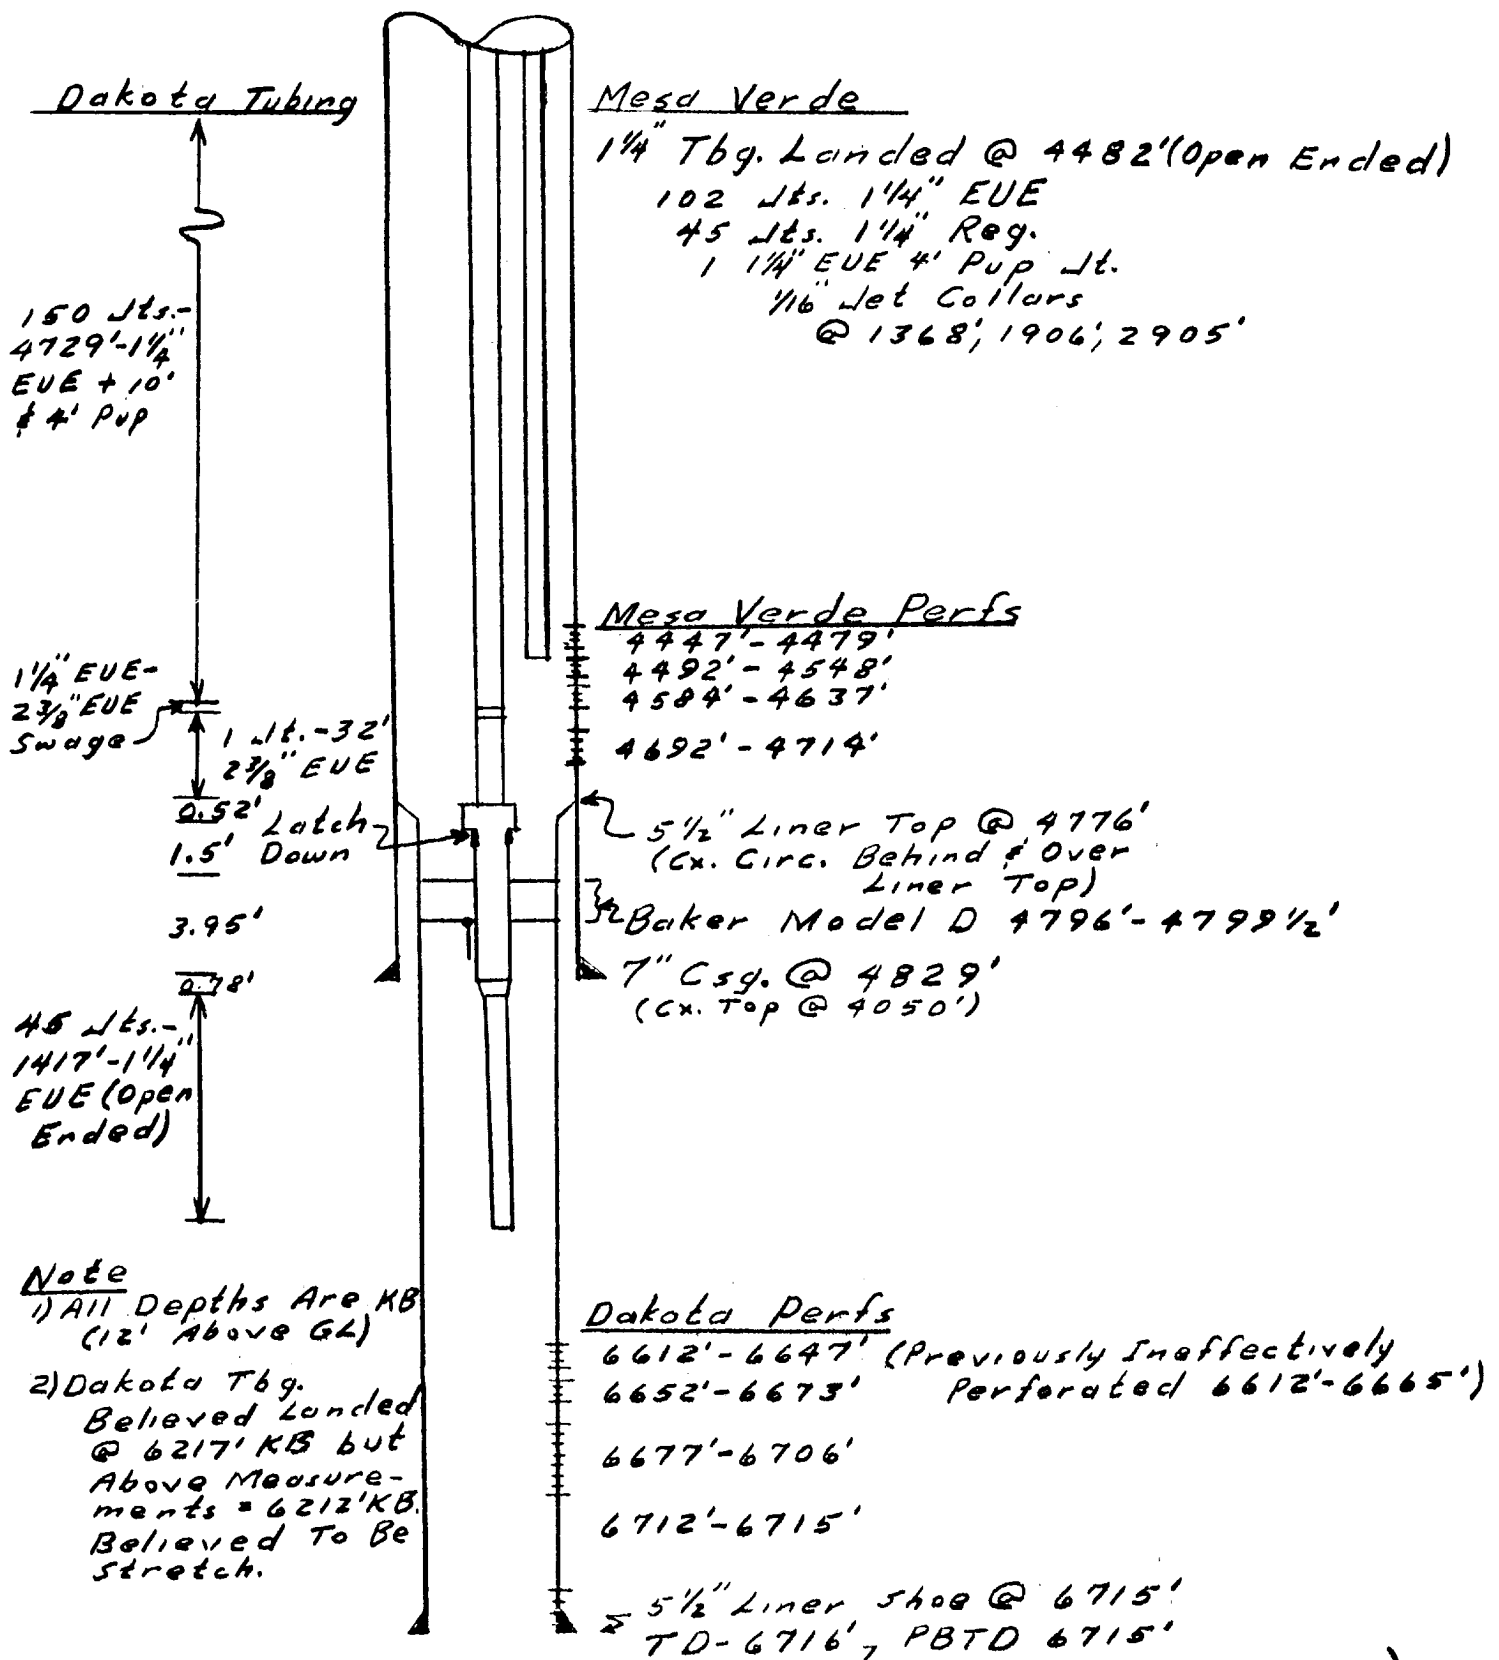 Dakota Tubing
150 Jts.-
4729'-1¼"
EUE + 10'
& 4' Pup
1¼" EUE-
2⅜" EUE
Swage
1 Jt.-32'
2⅜" EUE
0.52'
Latch
Down
1.5'
3.95'
0.78'
45 Jts.-
1417'-1¼"
EUE (Open
Ended)
Note
1) All Depths Are KB
(12' Above GL)
2) Dakota Tbg.
Believed Landed
@ 6217' KB but
Above Measure-
ments = 6212' KB.
Believed To Be
Stretch.
Mesa Verde
1¼" Tbg. Landed @ 4482' (Open Ended)
102 Jts. 1¼" EUE
45 Jts. 1¼" Reg.
1 1¼" EUE 4' Pup Jt.
1/16" Jet Collars
@ 1368', 1906', 2905'
Mesa Verde Perfs
4447'-4479'
4492'-4548'
4584'-4637'
4692'-4714'
5½" Liner Top @ 4776'
(Cx. Circ. Behind & Over
Liner Top)
Baker Model D 4796'-4799½'
7" Csg. @ 4829'
(Cx. Top @ 4050')
Dakota Perfs
6612'-6647' (Previously Ineffectively
6652'-6673' Perforated 6612'-6665')
6677'-6706'
6712'-6715'
5½" Liner Shoe @ 6715'
TD-6716', PBTD 6715'